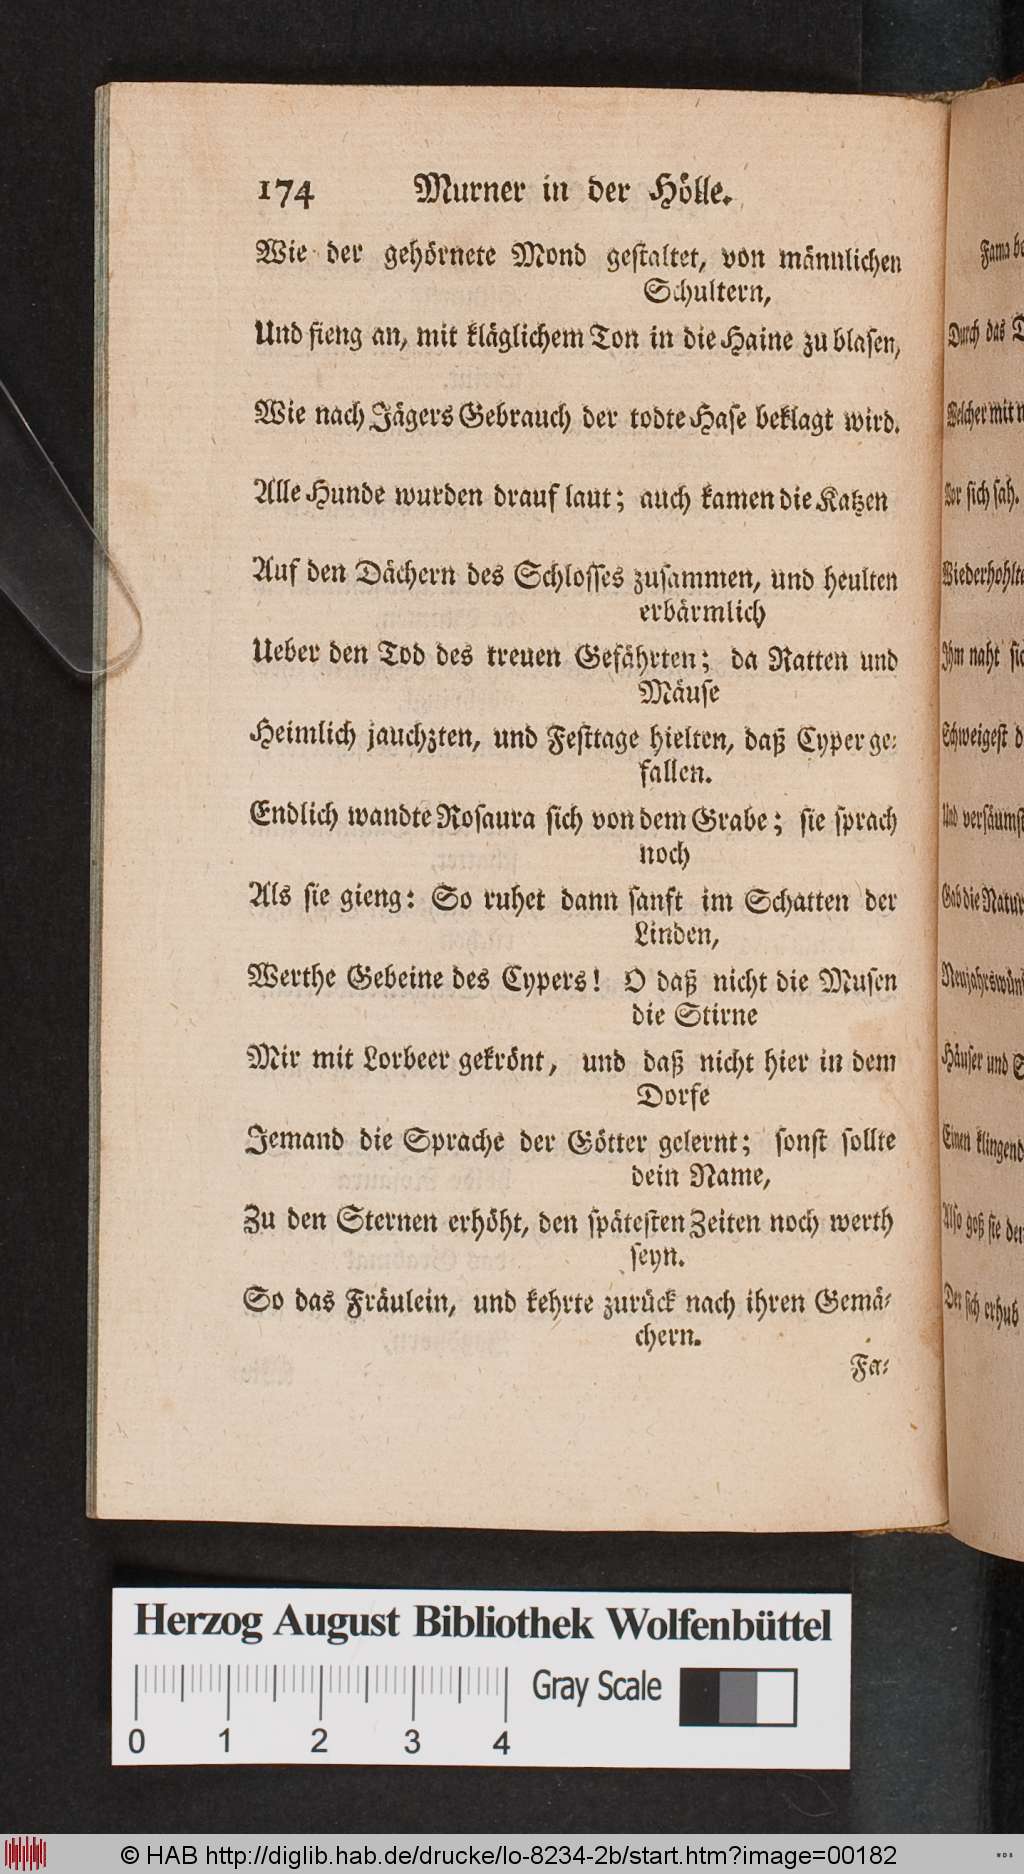 174 Murner in der Hölle.
Wie der gehörnete Mond gestaltet, von männlichen
Schultern,
Und fieng an, mit kläglichem Ton in die Haine zu blasen,
Wie nach Jägers Gebrauch der todte Hase beklagt wird.
Alle Hunde wurden drauf laut; auch kamen die Katzen
Auf den Dächern des Schlosses zusammen, und heulten
erbärmlich
Ueber den Tod des treuen Gefährten; da Ratten und
Mäuse
Heimlich jauchzten, und Festtage hielten, daß Cyper ge-
fallen.
Endlich wandte Rosaura sich von dem Grabe; sie sprach
noch
Als sie gieng: So ruhet dann sanft im Schatten der
Linden,
Werthe Gebeine des Cypers! O daß nicht die Musen
die Stirne
Mir mit Lorbeer gekrönt, und daß nicht hier in dem
Dorfe
Jemand die Sprache der Götter gelernt; sonst sollte
dein Name,
Zu den Sternen erhöht, den spätesten Zeiten noch werth
seyn.
So das Fräulein, und kehrte zurück nach ihren Gemä-
chern.
Fa-
Fama
Durch das
Welcher mit
Vor sich sah.
Wiederhohlte
Ihm naht
Schweigest
Und versäumst
Gab die Natur
Neujahrswün
Häuser und
Einen klingend
Also goß sie
Der sich erhub
Herzog August Bibliothek Wolfenbüttel
Gray Scale
0 1 2 3 4
© HAB http://diglib.hab.de/drucke/lo-8234-2b/start.htm?image=00182